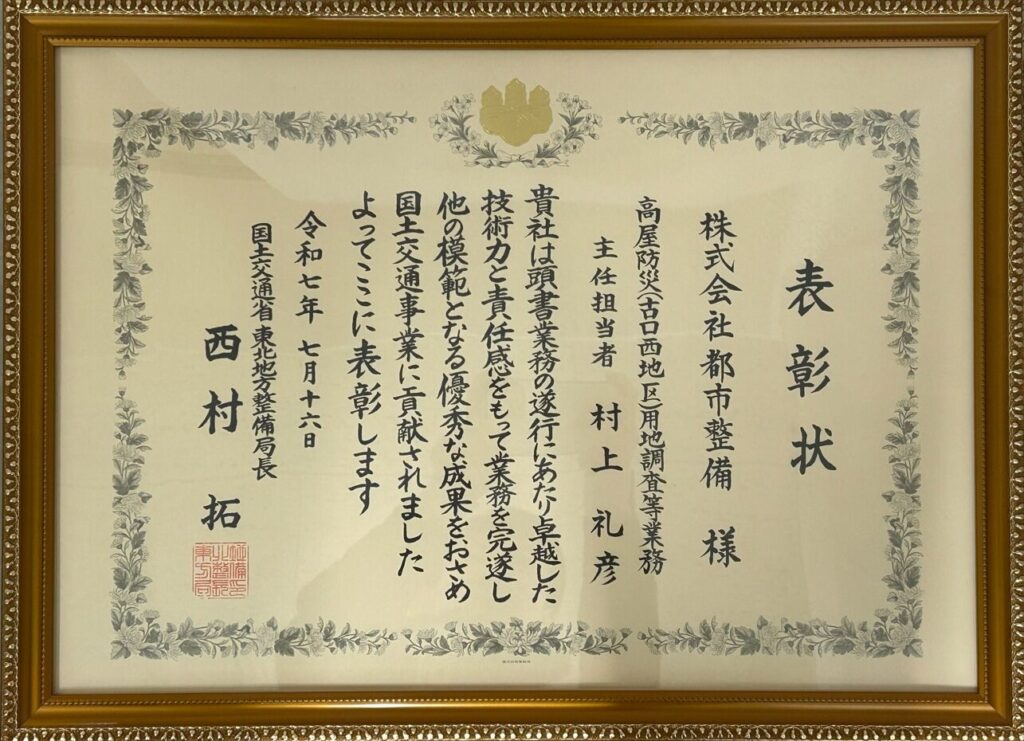 表彰状
株式会社都市整備 様
高屋防災(古口西地区)用地調査等業務
主任担当者 村上礼彦
貴社は頭書業務の遂行にあたり卓越した
技術力と責任感をもって業務を完遂し
他の模範となる優秀な成果をおさめ
国土交通事業に貢献されました
よってここに表彰します
令和七年 七月十六日
国土交通省 東北地方整備局長
西村 拓